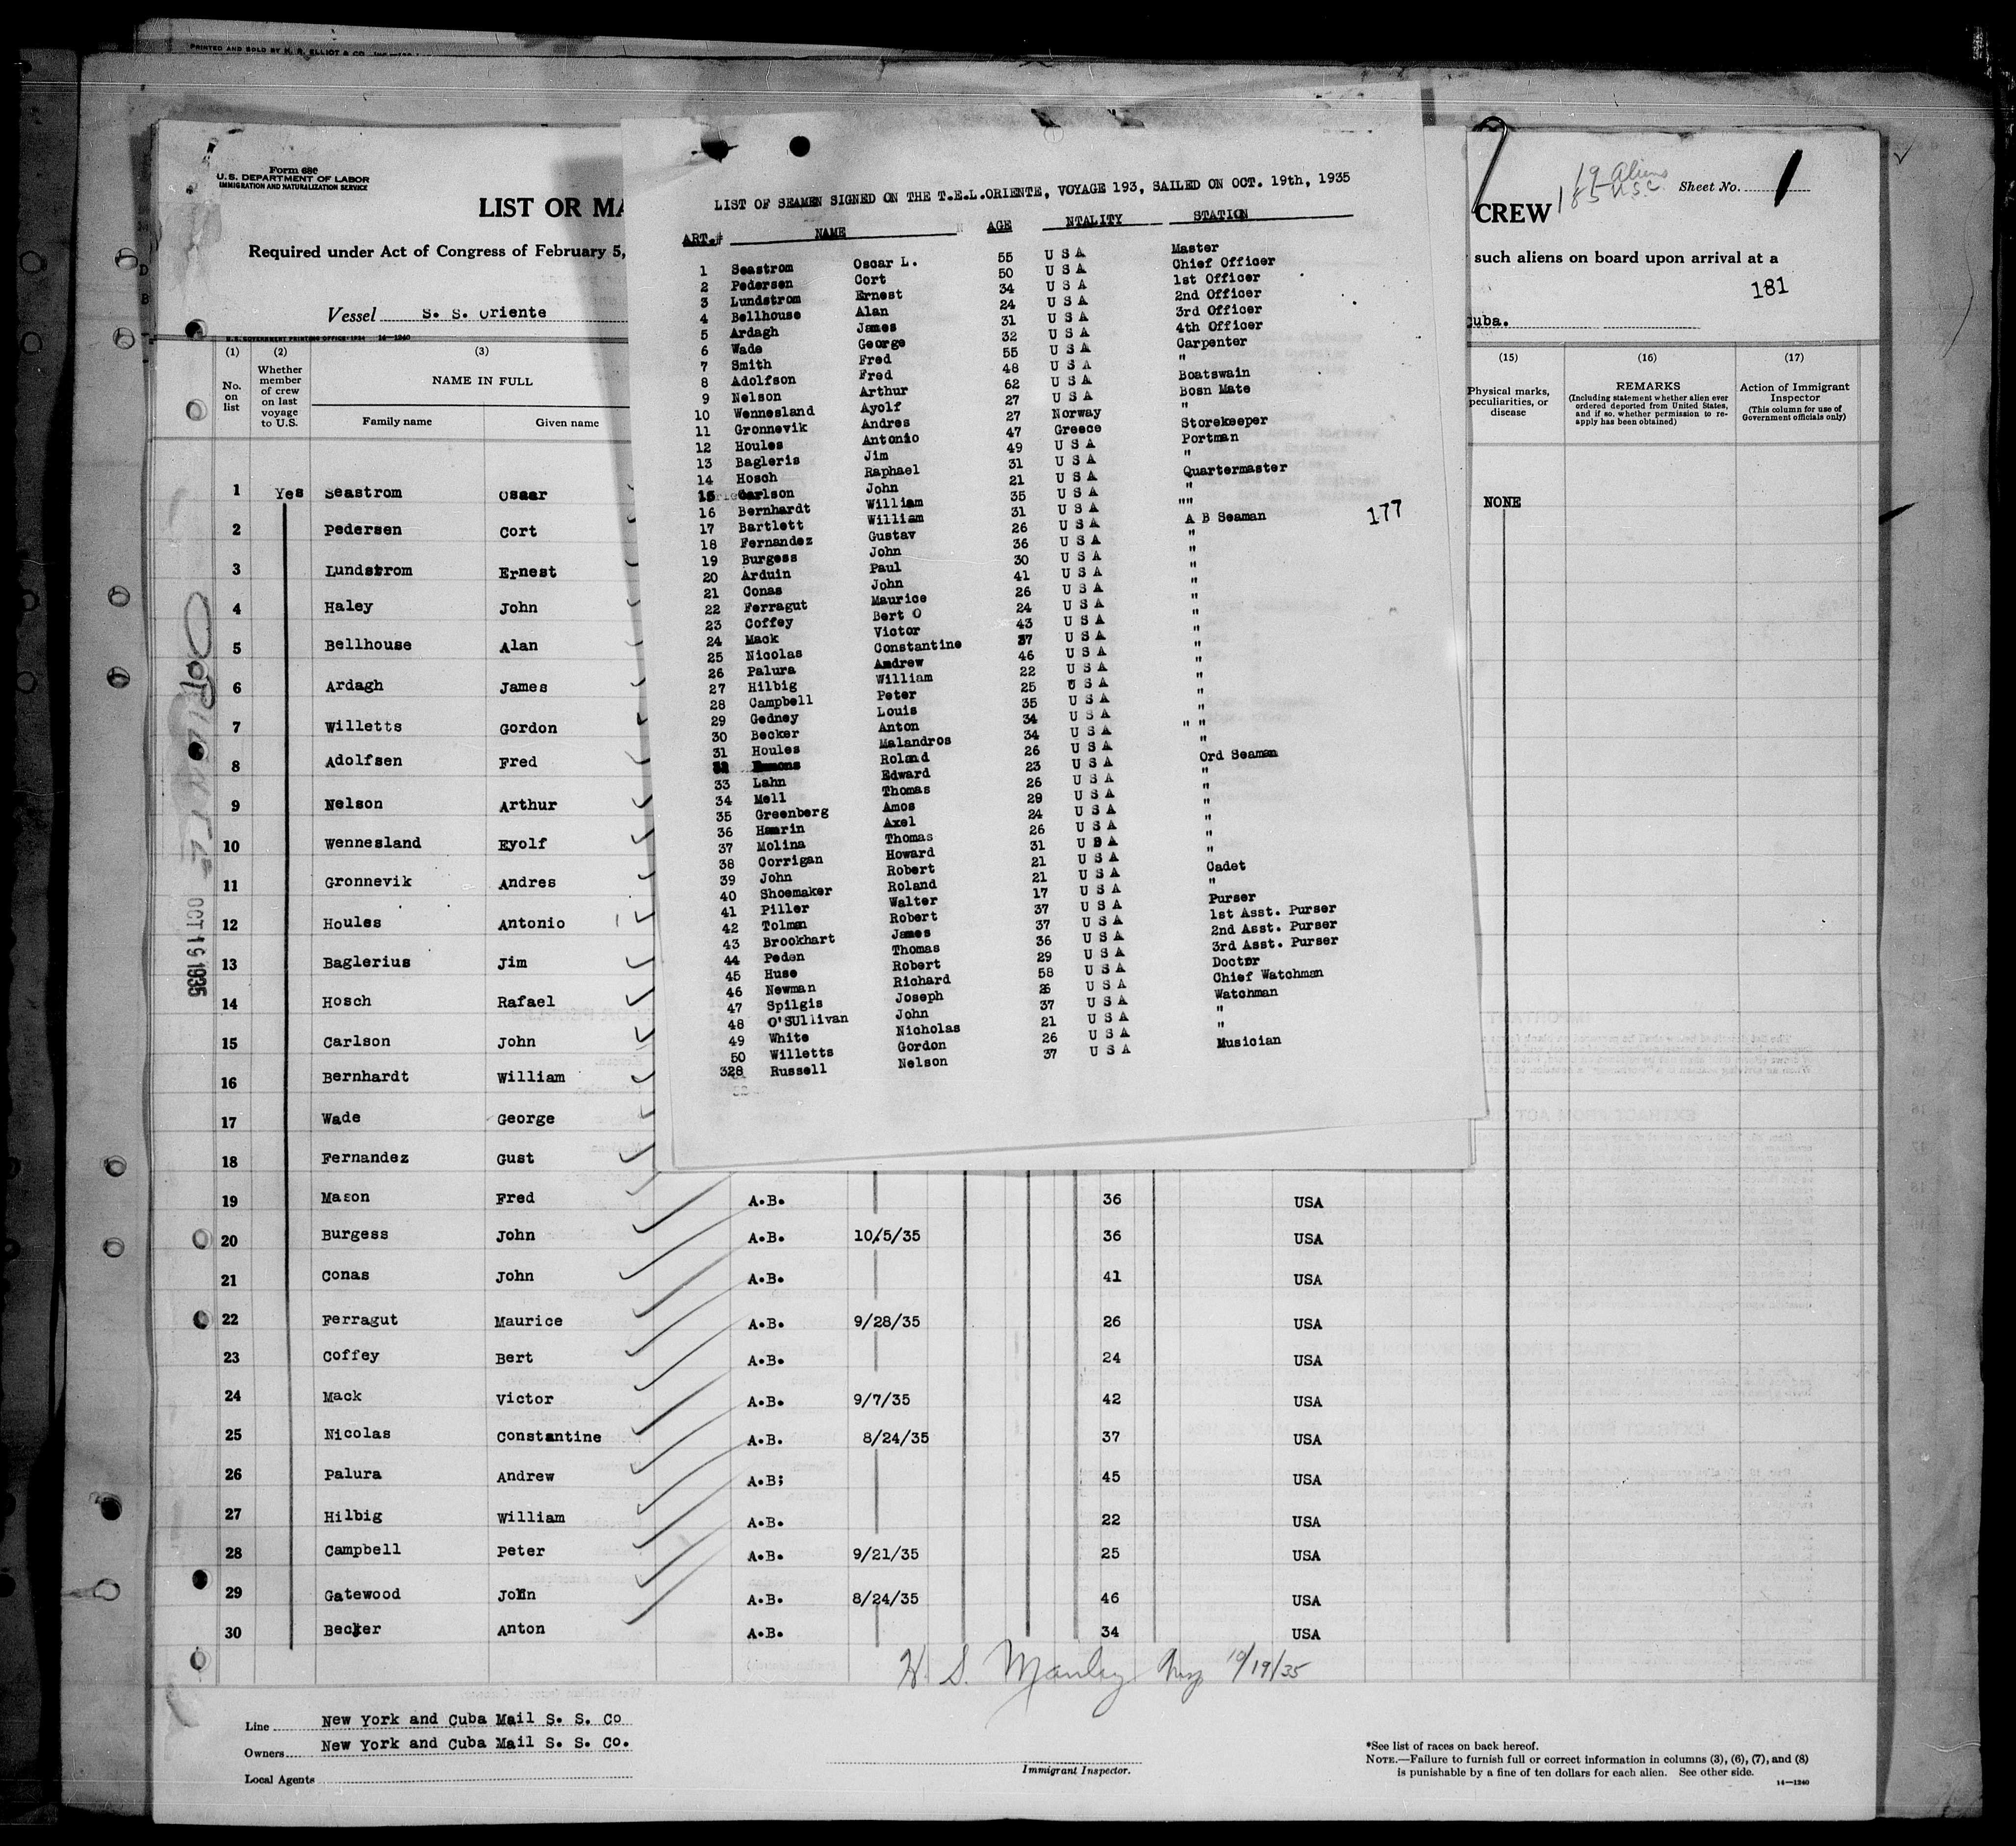 PRINTED AND SOLD BY H. R. ELLIOT & CO.
Form 680
U.S. DEPARTMENT OF LABOR
IMMIGRATION AND NATURALIZATION SERVICE
LIST OR MA
CREW
19 Aliens
185 U.S.C.
Sheet No. 1
Required under Act of Congress of February 5,
such aliens on board upon arrival at a
181
Vessel S. S. Oriente
uba.
U.S. GOVERNMENT PRINTING OFFICE: 1934 14—1240
LIST OF SEAMEN SIGNED ON THE T.E.L.ORIENTE, VOYAGE 193, SAILED ON OCT. 19th, 1935
ART.# NAME AGE NTALITY STATION
1 Seastrom Oscar L. 55 U S A Master
2 Pedersen Cort 50 U S A Chief Officer
3 Lundstrom Ernest 34 U S A 1st Officer
4 Bellhouse Alan 24 U S A 2nd Officer
5 Ardagh James 31 U S A 3rd Officer
6 Wade George 32 U S A 4th Officer
7 Smith Fred 55 U S A Carpenter
8 Adolfson Fred 48 U S A "
9 Nelson Arthur 62 U S A Boatswain
10 Wennesland Ayolf 27 U S A Bosn Mate
11 Gronnevik Andres 27 Norway "
12 Houles Antonio 47 Greece Storekeeper
13 Bagleris Jim 49 U S A Portman
14 Hosch Raphael 31 U S A "
15 Carlson John 21 U S A Quartermaster
16 Bernhardt William 35 U S A "
17 Bartlett William 31 U S A ""
18 Fernandez Gustav 26 U S A A B Seaman
19 Burgess John 36 U S A "
20 Arduin Paul 30 U S A "
21 Conas John 41 U S A "
22 Ferragut Maurice 26 U S A "
23 Coffey Bert O 24 U S A "
24 Mack Victor 43 U S A "
25 Nicolas Constantine 37 U S A "
26 Palura Andrew 46 U S A "
27 Hilbig William 22 U S A "
28 Campbell Peter 25 U S A "
29 Gedney Louis 35 U S A "
30 Becker Anton 34 U S A "
31 Houles Malandros 34 U S A " "
32 Roland 26 U S A "
33 Lahn Edward 23 U S A Ord Seaman
34 Mell Thomas 26 U S A "
35 Greenberg Amos 29 U S A "
36 Hamrin Axel 24 U S A "
37 Molina Thomas 26 U S A "
38 Corrigan Howard 31 U S A "
39 John Robert 21 U S A "
40 Shoemaker Roland 21 U S A Cadet
41 Piller Walter 17 U S A "
42 Tolman Robert 37 U S A Purser
43 Brookhart James 37 U S A 1st Asst. Purser
44 Peden Thomas 36 U S A 2nd Asst. Purser
45 Huse Robert 29 U S A 3rd Asst. Purser
46 Newman Richard 58 U S A Doctor
47 Spilgis Joseph 26 U S A Chief Watchman
48 O'SUllivan John 37 U S A Watchman
49 White Nicholas 21 U S A "
50 Willetts Gordon 26 U S A "
328 Russell Nelson 37 U S A Musician
177
(1) (2) (3) (15) (16) (17)
No. on list
Whether member of crew on last voyage to U.S.
NAME IN FULL
Family name Given name
Physical marks, peculiarities, or disease
REMARKS
(Including statement whether alien ever ordered deported from United States, and if so, whether permission to reapply has been obtained)
Action of Immigrant Inspector
(This column for use of Government officials only)
1 Yes Seastrom Osaar NONE
2 Pedersen Cort
3 Lundstrom Ernest
4 Haley John
5 Bellhouse Alan
6 Ardagh James
7 Willetts Gordon
8 Adolfsen Fred
9 Nelson Arthur
10 Wennesland Eyolf
11 Gronnevik Andres
12 Houles Antonio
13 Baglerius Jim
14 Hosch Rafael
15 Carlson John
16 Bernhardt William
17 Wade George
18 Fernandez Gust
19 Mason Fred A.B. 36 USA
20 Burgess John A.B. 10/5/35 36 USA
21 Conas John A.B. 41 USA
22 Ferragut Maurice A.B. 9/28/35 26 USA
23 Coffey Bert A.B. 24 USA
24 Mack Victor A.B. 9/7/35 42 USA
25 Nicolas Constantine A.B. 8/24/35 37 USA
26 Palura Andrew A.B; 45 USA
27 Hilbig William A.B. 22 USA
28 Campbell Peter A.B. 9/21/35 25 USA
29 Gatewood John A.B. 8/24/35 46 USA
30 Becker Anton A.B. 34 USA
OCT 19 1935
H. S. Manley 10/19/35
Line New York and Cuba Mail S. S. Co
Owners New York and Cuba Mail S. S. Co.
Local Agents
Immigrant Inspector.
*See list of races on back hereof.
NOTE.—Failure to furnish full or correct information in columns (3), (6), (7), and (8)
is punishable by a fine of ten dollars for each alien. See other side.
14—1240